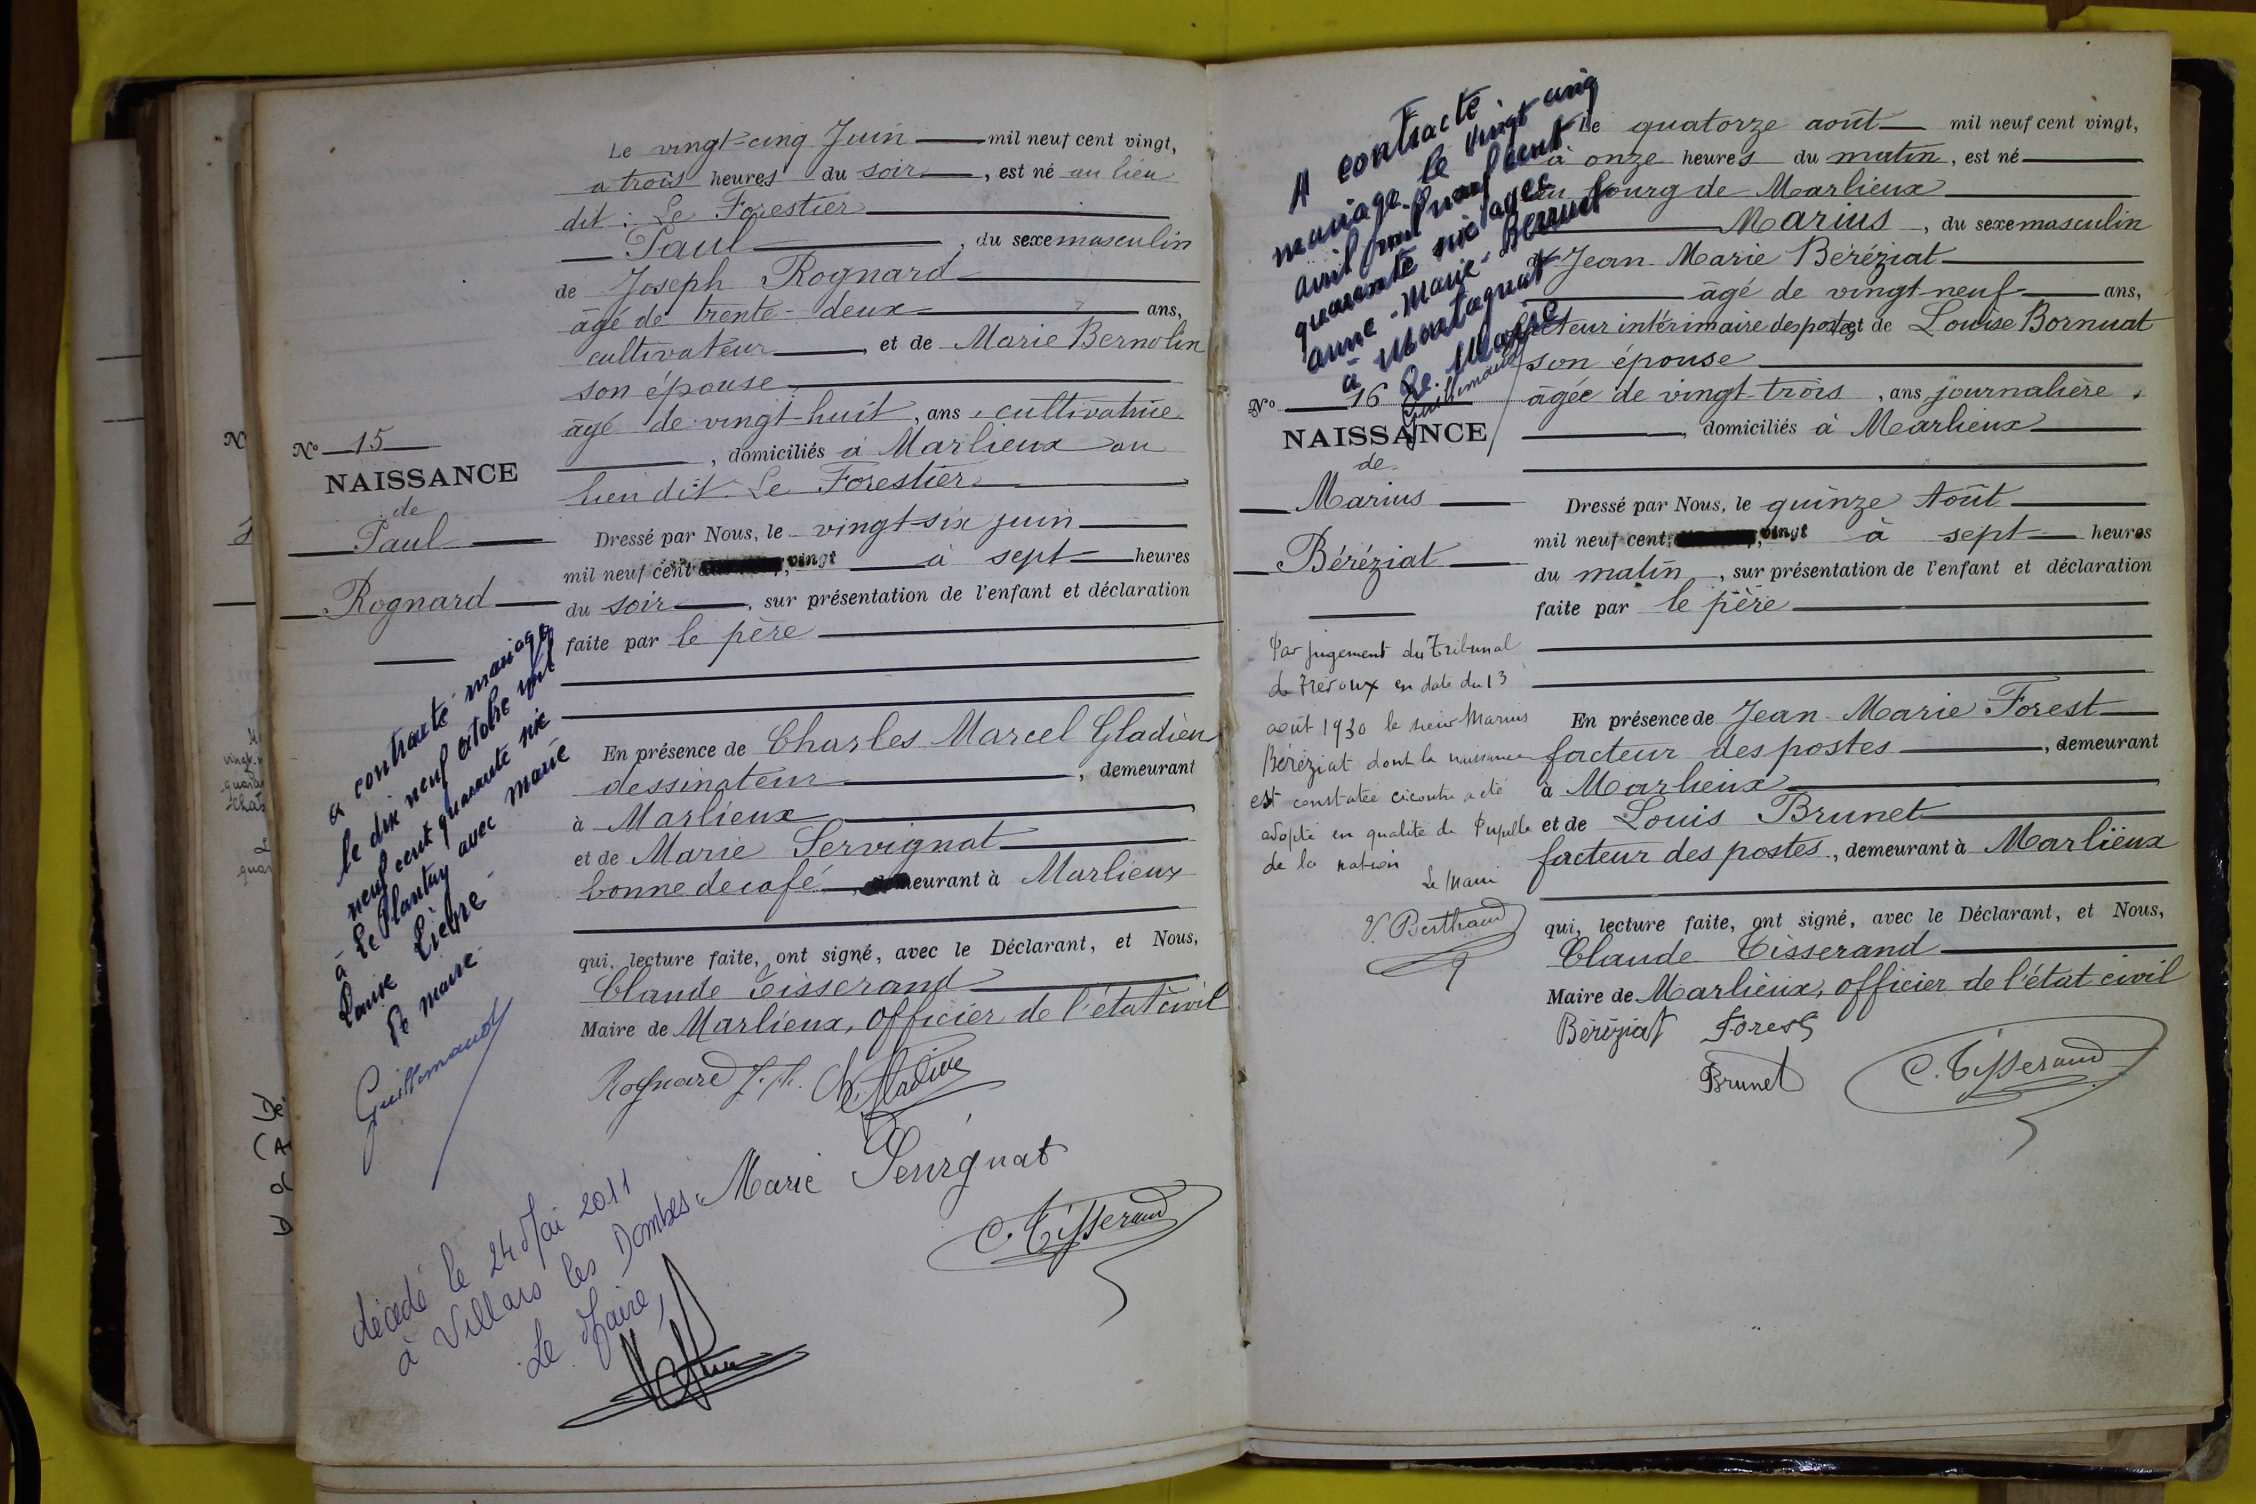 N° 15
NAISSANCE
de
Paul
Rognard
a contracté mariage
le dix neuf octobre mil
neuf cent quarante six
à Le Plantay avec Marie
Louise
Le maire
Guillemaud
Le vingt-cinq Juin mil neuf cent vingt,
à trois heures du soir, est né au lieu
dit : Le Forestier
Paul, du sexe masculin
de Joseph Rognard
âgé de trente-deux ans,
cultivateur, et de Marie Bernolin
son épouse
âgé de vingt-huit, ans, cultivatrice
, domiciliés à Marlieux au
lieu dit : Le Forestier
Dressé par Nous, le vingt-six juin
mil neuf cent vingt à sept heures
du soir, sur présentation de l'enfant et déclaration
faite par le père
En présence de Charles Marcel Gladien
dessinateur, demeurant
à Marlieux
et de Marie Servignat
bonne de café, demeurant à Marlieux
qui, lecture faite, ont signé, avec le Déclarant, et Nous,
Claude Tisserand
Maire de Marlieux, officier de l'état civil
Rognard J.
Marie Servignat
C. Tisserand
décédé le 24 Mai 2011
à Villars les Dombes
Le Maire,
A contracté
mariage le vingt cinq
avril mil neuf cent
quarante six avec
Anne-Marie-
à Montagnat
Le Maire
Guillemaud
N° 16
NAISSANCE
de
Marius
Béréziat
Par jugement du Tribunal
de Trévoux en date du 13
août 1930 le sieur Marius
Béréziat dont la naissance
est constatée cicontre a été
adopté en qualité de Pupille
de la nation
Le Maire
V. Berthaud
Le quatorze août mil neuf cent vingt,
à onze heures du matin, est né
au bourg de Marlieux
Marius, du sexe masculin
de Jean Marie Béréziat
âgé de vingt neuf ans,
facteur intérimaire des postes et de Louise Bornuat
son épouse
âgée de vingt-trois, ans journalière,
, domiciliés à Marlieux
Dressé par Nous, le quinze Août
mil neuf cent vingt à sept heures
du matin, sur présentation de l'enfant et déclaration
faite par le père
En présence de Jean Marie Forest
facteur des postes, demeurant
à Marlieux
et de Louis Brunet
facteur des postes, demeurant à Marlieux
qui, lecture faite, ont signé, avec le Déclarant, et Nous,
Claude Tisserand
Maire de Marlieux, officier de l'état civil
Béréziat Forest
Brunet C. Tisserand